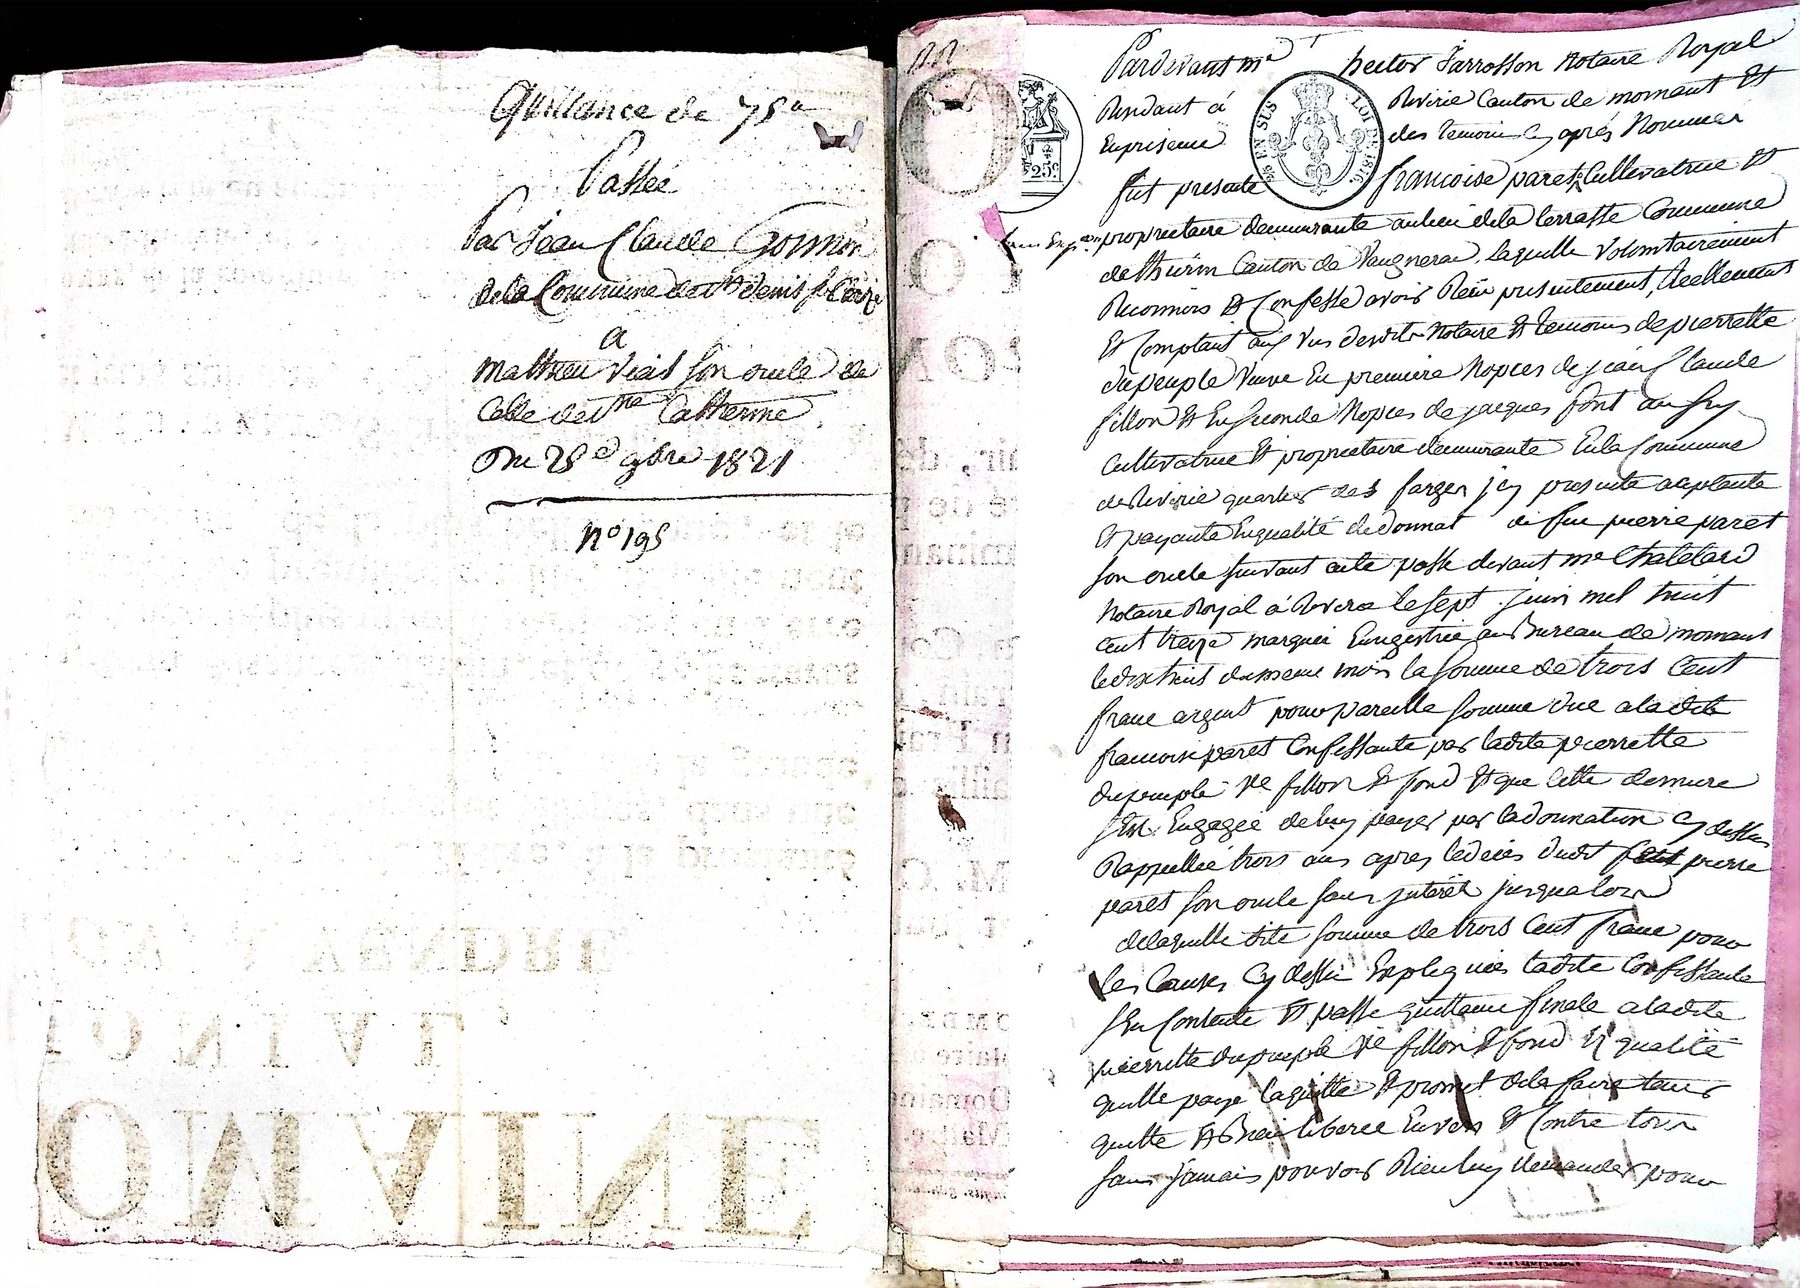 Quittance de 75 u
Passée
Par Jean Claude Goimon
de la Commune de St denis s
a
mathieu viais son oncle de
Celle de Ste Catherine
Du 25 gbre 1821
n° 195
Pardevant me hector Jarrosson notaire Royal
Residant á Riverie Canton de mornant Et
En presence des temoins cy aprés Nommes
fut presente francoise paret Cultivatrice Et
proprietaire demeurante au lieu de la terrasse Commune
de thurin Canton de Vaugneray, laquelle volontairement
Reconnois Et Confesse avoir Reçu presentement, Reellement
Et Comptant aux vus desdits Notaire Et temoins de pierrette
dupeuple veuve En premiere Nopces de jean Claude
fillon Et En seconde Nopces de jacques font aussy
Cultivatrice Et proprietaire demeurante En la Commune
de Riverie quartier des farges jcy presente acceptante
Et payante En qualité de donnat de feu pierre paret
son oncle suivant acte passé devant me Chatelard
Notaire Royal á Riverie le sept juin mil huit
cent treize Enregistrée au Bureau de mornant
le dix huit du meme mois la somme de trois Cent
franc argent pour pareille somme due a la dite
francoise paret Confessante par ladite pierrette
dupeuple ve fillon Et fond Et que Cette derniere
s'est Engagée de luy payer par la donnation cy dessus
Rappellée trois ans apres le deces dudit pierre
paret son oncle sans jnterêt jusqualors
de laquelle dite somme de trois Cent franc pour
les Causes Cy dessus Expliquées ladite Confessante
s'En Contente Et passe quittance finale a ladite
pierrette dupeuple ve fillon Et fond En qualité
quelle paye laquitte Et promet de la faire tenir
quitte Et Bien liberée Envers Et Contre tous
sans jamais pouvoir Rien luy demander pour
EN SUS
LOI DE 1816
25c